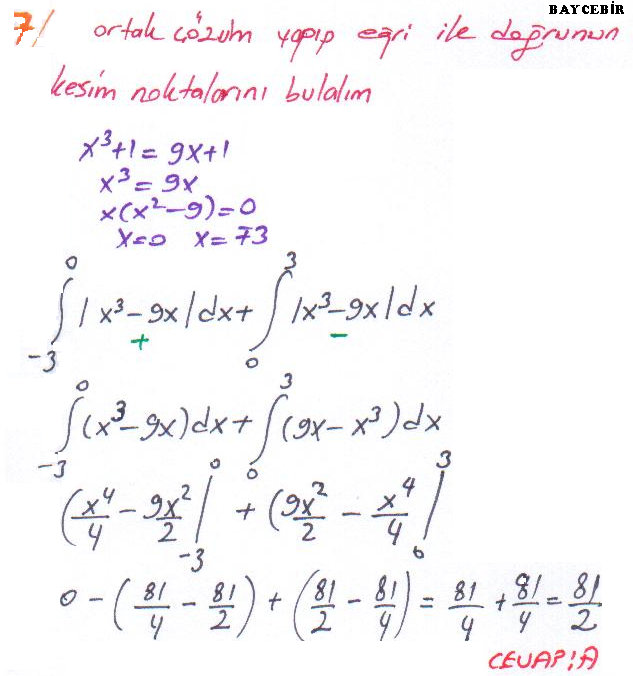 BAYCEBİR
7/ ortak çözüm yapıp eğri ile doğrunun
kesim noktalarını bulalım
x³+1 = 9x+1
x³ = 9x
x(x²-9)=0
x=0 x=∓3
∫₋₃⁰ |x³-9x|dx + ∫₀³ |x³-9x|dx
+ -
∫₋₃⁰ (x³-9x)dx + ∫₀³ (9x-x³)dx
(x⁴/4 - 9x²/2 |₋₃⁰ + (9x²/2 - x⁴/4 |₀³
0 - (81/4 - 81/2) + (81/2 - 81/4) = 81/4 + 81/4 = 81/2
CEVAP:A